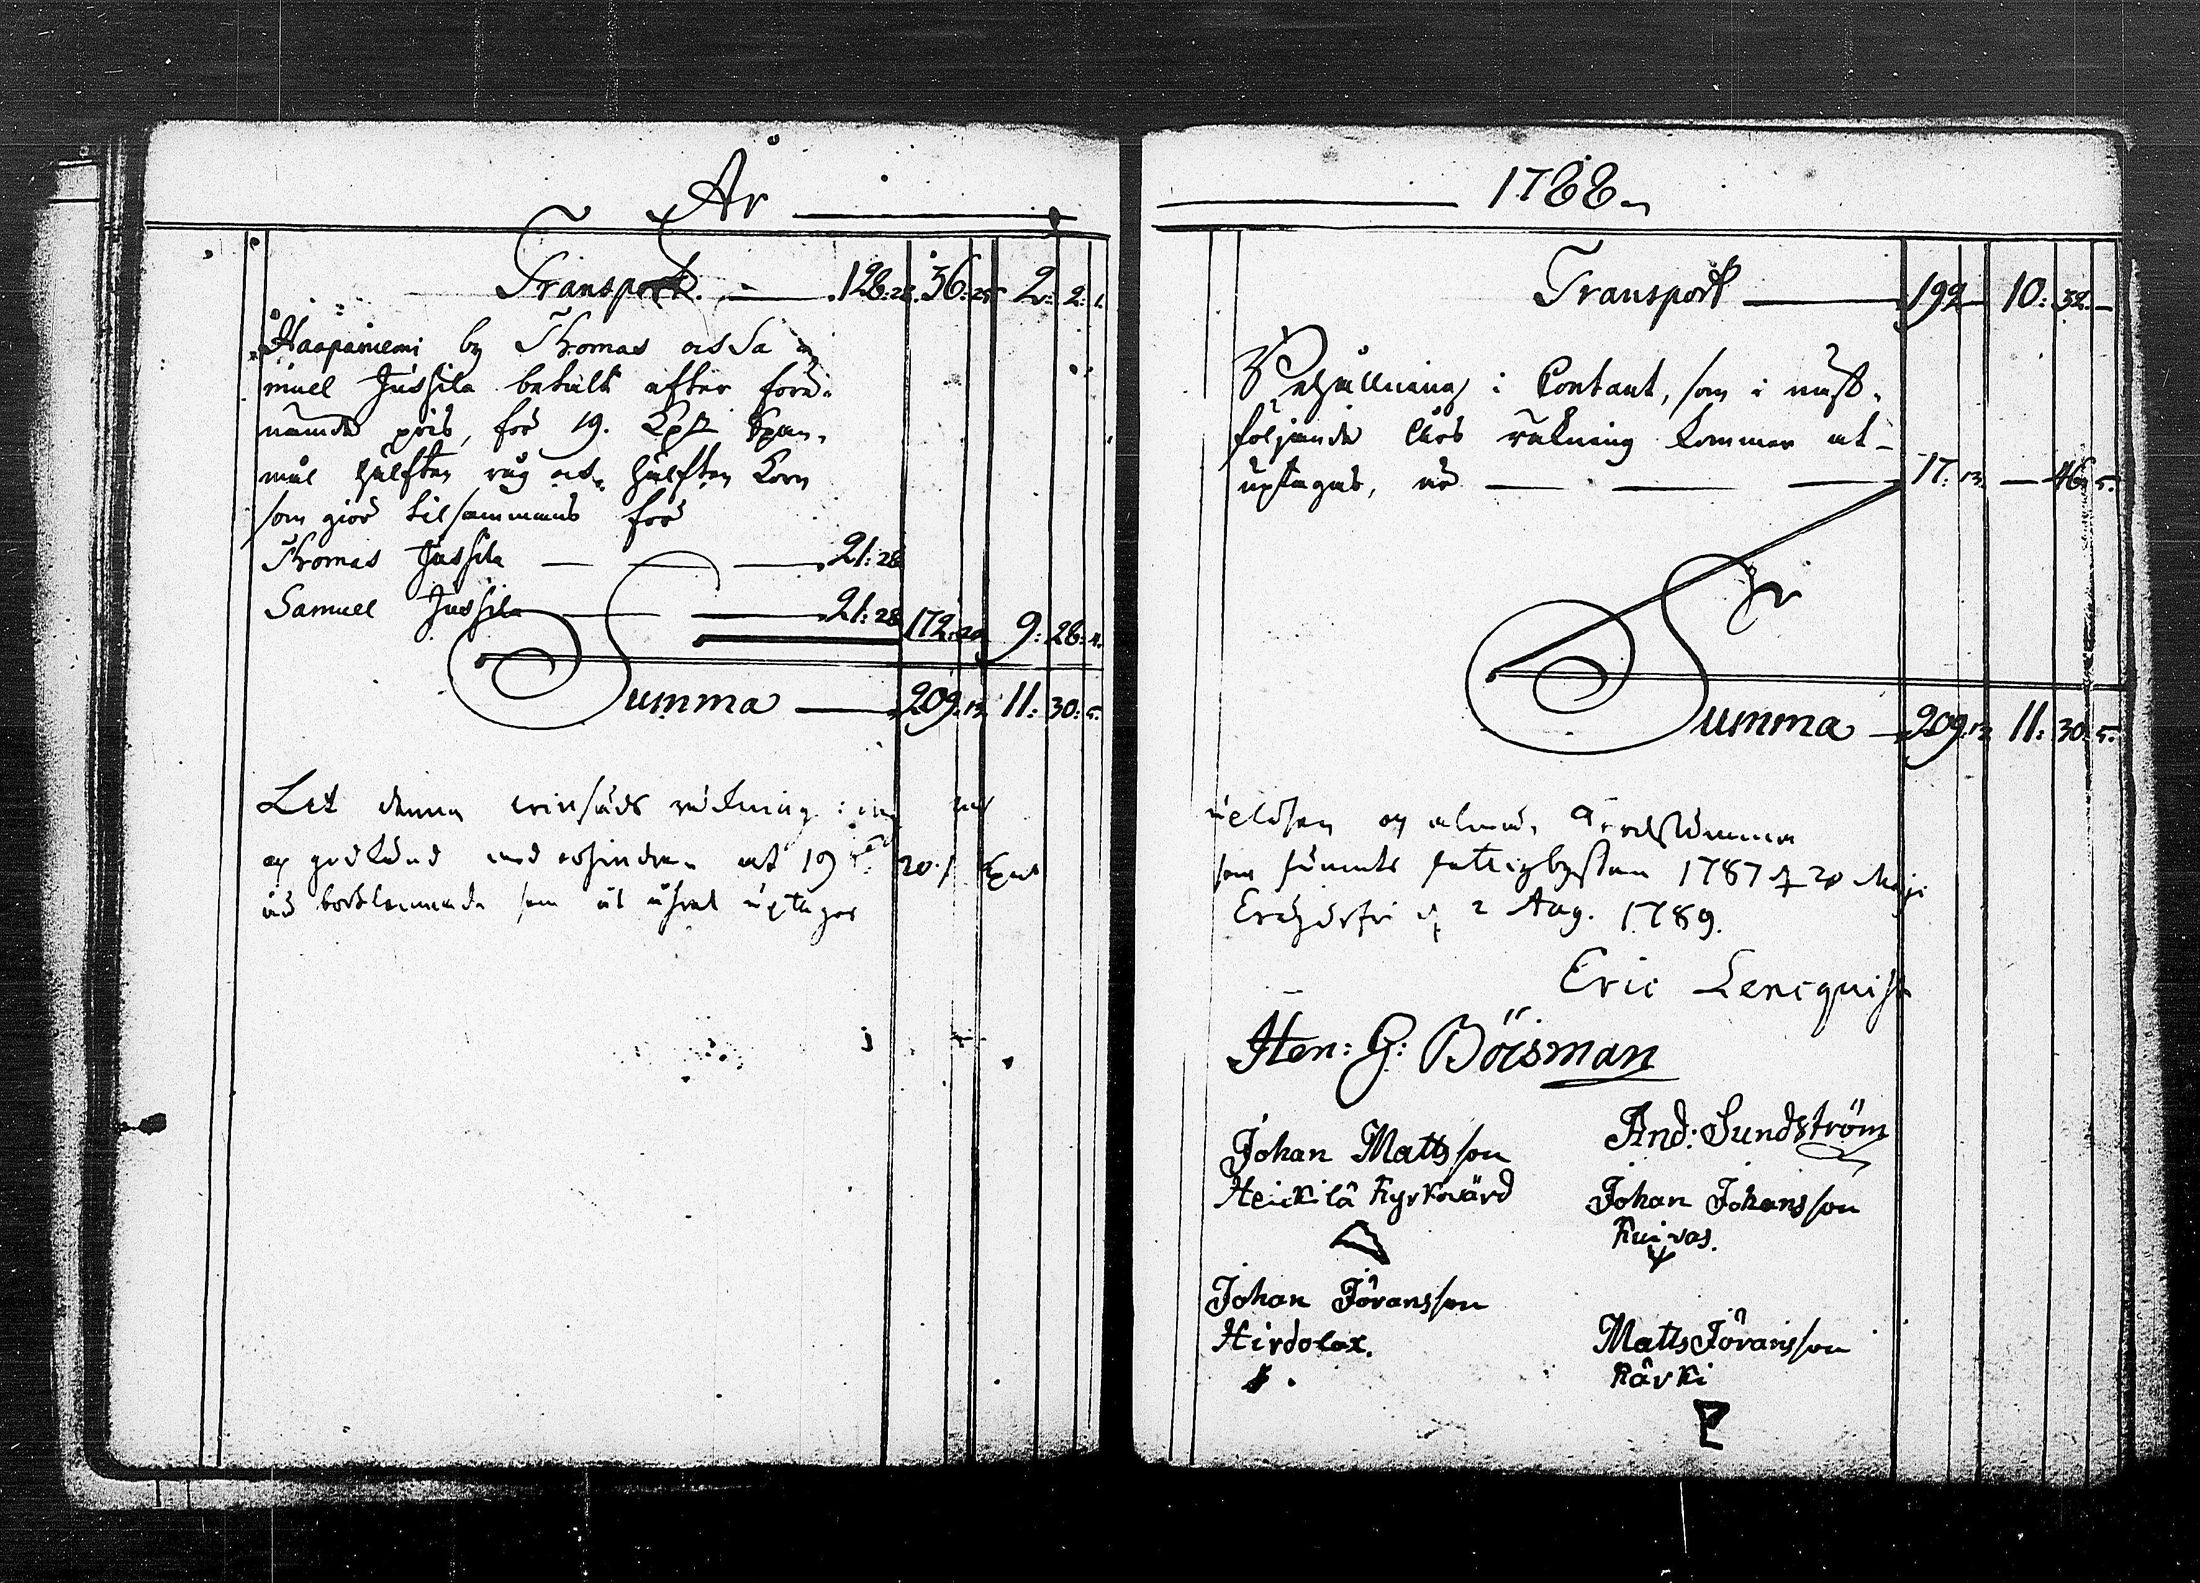 År
Transport. 128:28. 36:25 2: 2: 1.
Haapaniemi by Thomas och Sa-
muel Jussila betalt efter före-
nämde pris, för 19. Kpr Span-
mål hälften råg och hälften Korn
som giör tilsammans för
Thomas Jussila 21:28
Samuel Jussila 21:28 172:20 9: 28: 4.
Summa 209:13 11: 30: 5.
denna räkning
och godkänd med att 19
som uptages
1788
Transport 192 10: 32.
Behållning i Contant, som i näst-
följande Års räkning kommer at
uptagas, är 17:13 46: 5.
Summa 209:13 11: 30: 5.
och
som 1787 d 20 Maji
d 2 Aug. 1789.
Eric Lencquist
Hen: G: Böisman
And: Sundström
Johan Mattsson
Heickilä Kyrkovärd
Johan Johansson
Kuivas.
Johan Jöransson
Hirdolax.
Matts Jöransson
Kärki